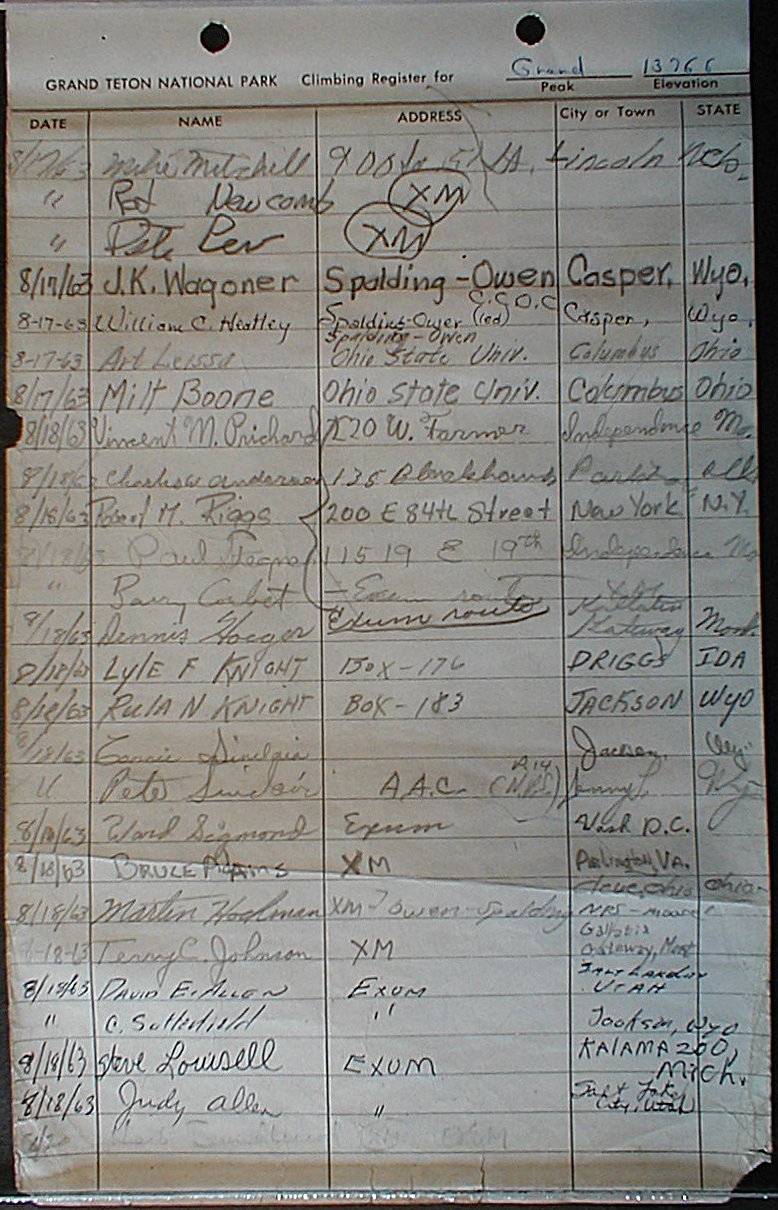 GRAND TETON NATIONAL PARK Climbing Register for Grand 13766
Peak Elevation
DATE NAME ADDRESS City or Town STATE
Mike Mitchell Lincoln Neb.
" Rod Newcomb XM
" Pete Lev XM
8/17/63 J.K. Wagoner Spalding-Owen Casper, Wyo.
C.G.O.C
8-17-63 William C. Heatley Spalding-Owen (led) Casper, Wyo.
Spalding-Owen
8-17-63 Art Leissa Ohio State Univ. Columbus Ohio
8/17/63 Milt Boone Ohio State Univ. Columbus Ohio
8/18/63 Vincent M. Prichard W. Farmer Independence Mo.
Charles W. Anderson 135
8/18/63 Robert M. Riggs 200 E 84th Street New York N.Y.
Paul 11519 E 19th Independence Mo
" Barry Corbet - Exum route
8/18/63 Dennis Exum route Gateway Mont.
8/18/63 LYLE F KNIGHT BOX-176 DRIGGS IDA
8/18/63 RULA N KNIGHT BOX-183 JACKSON WYO
8/18/63 Connie Sinclair Jackson, Wyo.
" Pete Sinclair A.A.C. Jenny L. Wyo
8/18/63 Ward Sigmond Exum Wash D.C.
8/18/63 BRUCE ADAMS XM Arlington, VA.
Cleve, Ohio Ohio
8/18/63 Martin XM Owen-Spalding NPS-Moose
Gallatin
8-18-63 Terry C. Johnson XM Gateway, Mont
SALT LAKE CITY
8/18/63 DAVID E. ALLEN EXUM UTAH
" C. Satterfield " Jackson, Wyo
8/18/63 Steve Lowsell EXUM KALAMAZOO,
Mich.
8/18/63 Judy Allen " Salt Lake
City, Utah